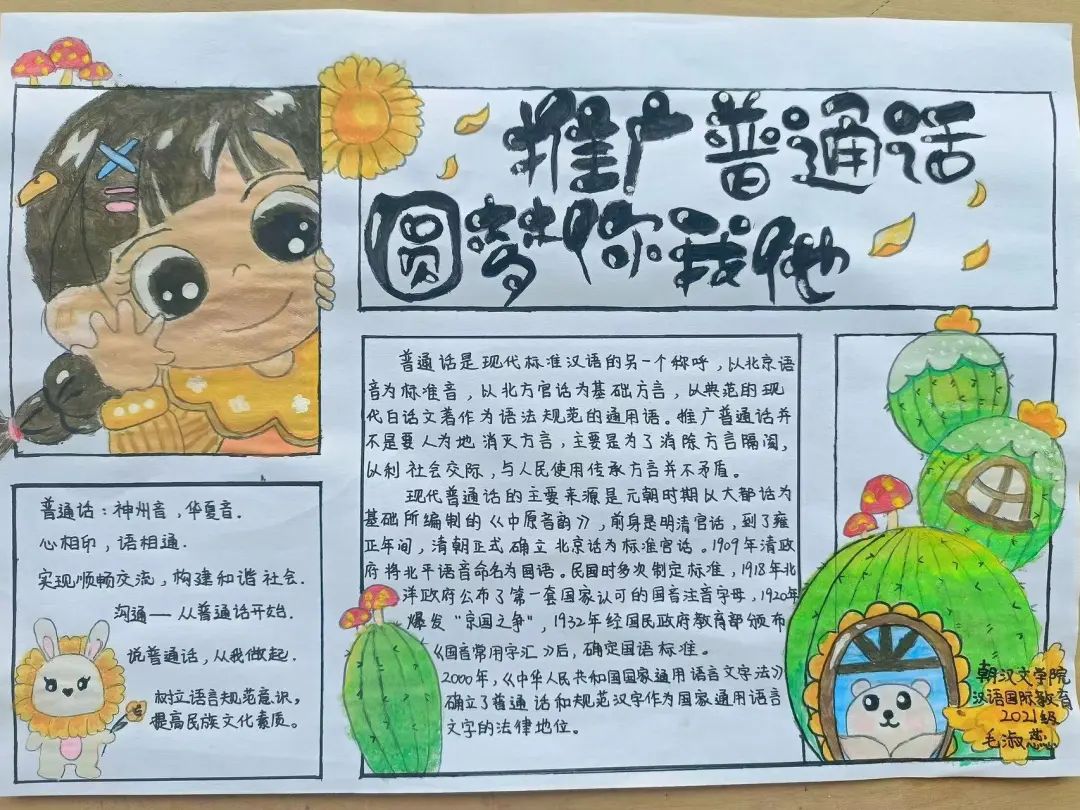 推广普通话
圆梦你我他
普通话是现代标准汉语的另一个称呼，以北京语
音为标准音，以北方官话为基础方言，以典范的现
代白话文著作为语法规范的通用语。推广普通话并
不是要人为地消灭方言，主要是为了消除方言隔阂，
以利社会交际，与人民使用传承方言并不矛盾。
现代普通话的主要来源是元朝时期以大都话为
基础所编制的《中原音韵》，前身是明清官话，到了雍
正年间，清朝正式确立北京话为标准官话。1909年清政
府将北平语音命名为国语。民国时多次制定标准，1918年北
洋政府公布了第一套国家认可的国音注音字母，1920年
爆发"京国之争"，1932年经国民政府教育部颁布
《国音常用字汇》后，确定国语标准。
2000年，《中华人民共和国国家通用语言文字法》
确立了普通话和规范汉字作为国家通用语言
文字的法律地位。
普通话：神州音，华夏音.
心相印，语相通.
实现顺畅交流，构建和谐社会.
沟通——从普通话开始.
说普通话，从我做起.
树立语言规范意识，
提高民族文化素质。
朝汉文学院
汉语国际教育
2021级
毛淑蕊